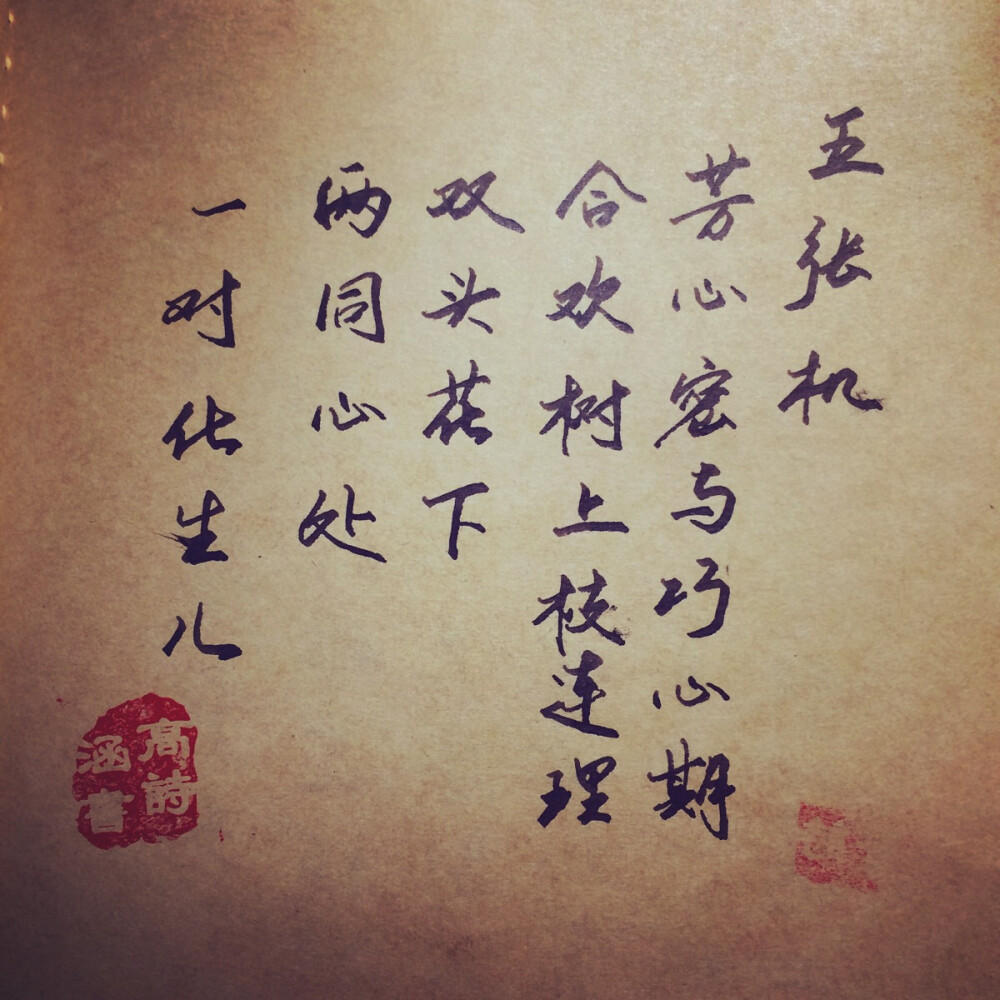 五张机
芳心密与巧心期
合欢树上枝连理
双头花下
两同心处
一对化生儿
高詩
涵書